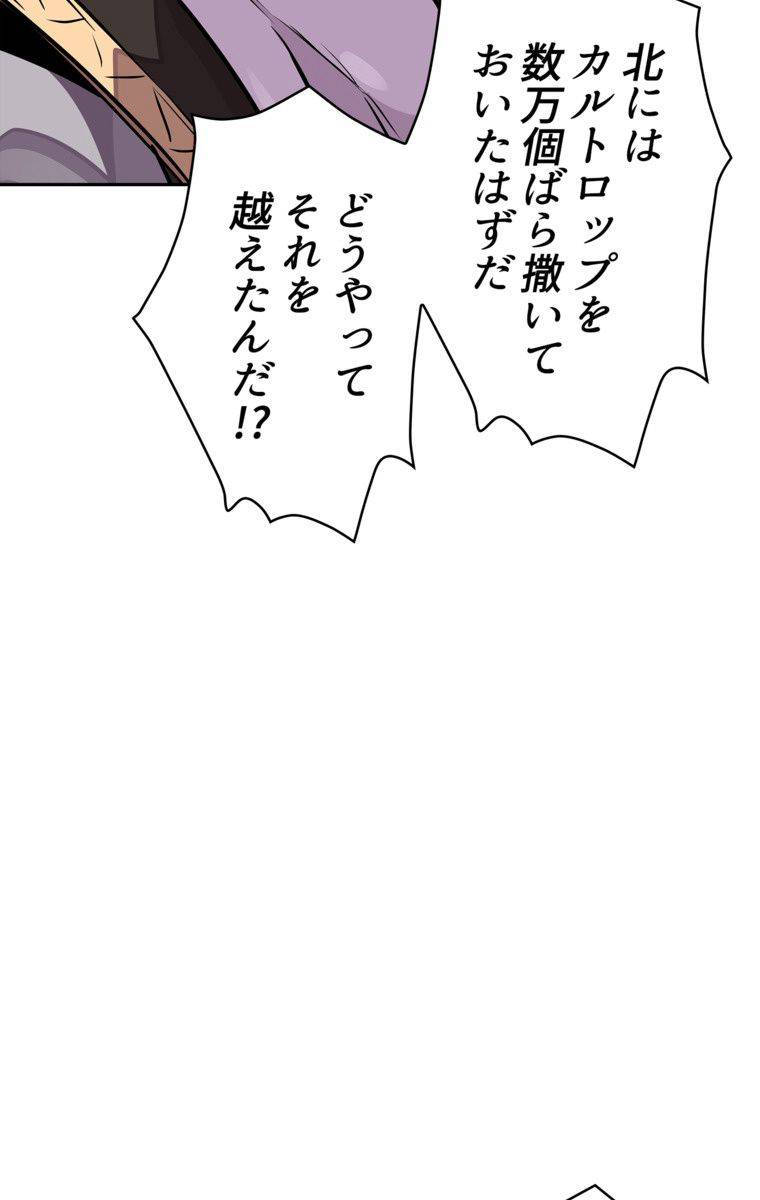 北には
カルトロップを
数万個ばら撒いて
おいたはずだ
どうやって
それを
越えたんだ!?